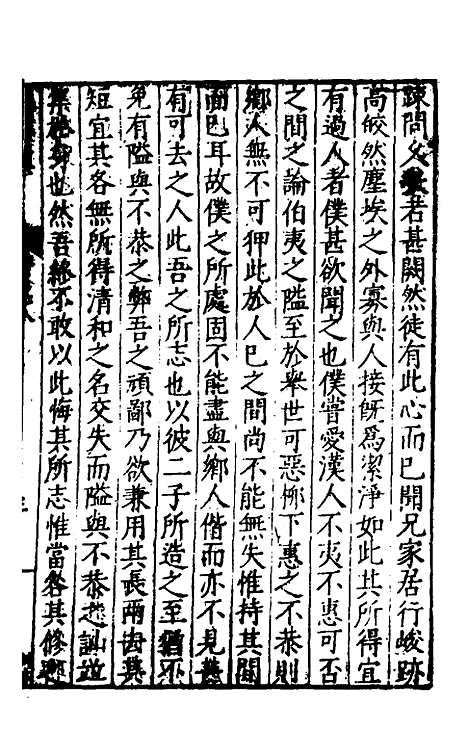 疎問久於君甚闕然徒有此心而已聞兄家居行峻跡
高皎然塵埃之外寡與人接旣為潔淨如此其所得宜
有過人者僕甚欲聞之也僕嘗愛漢人不夷不惠可否
之間之論伯夷之隘至於舉世可惡栁下惠之不恭則
鄉人無不可狎此於人巳之間尚不能無失惟持其間
而已耳故僕之所處固不能盡與鄉人偕而亦不見甚
有可去之人此吾之所志也以彼二子所造之至猶不
免有隘與不恭之弊吾之頑鄙乃欲兼用其長兩去其
短宜其各無所得清和之名交失而隘與不恭之訕並
集於身也然吾終不敢以此悔其所志惟當咎其修